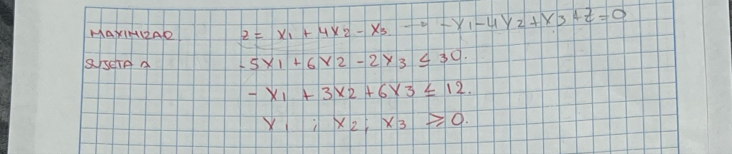 MAXIMIZAR z = X1 + 4X2 - X3 → -X1 - 4X2 + X3 + Z = 0
SUJETA A -5X1 + 6X2 - 2X3 ≤ 30.
- X1 + 3X2 + 6X3 ≤ 12.
X1 ; X2 ; X3 ≥ 0.